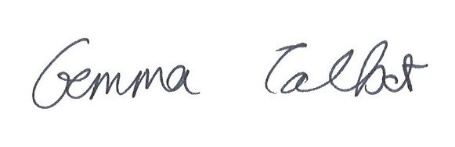 Gemma Talbot